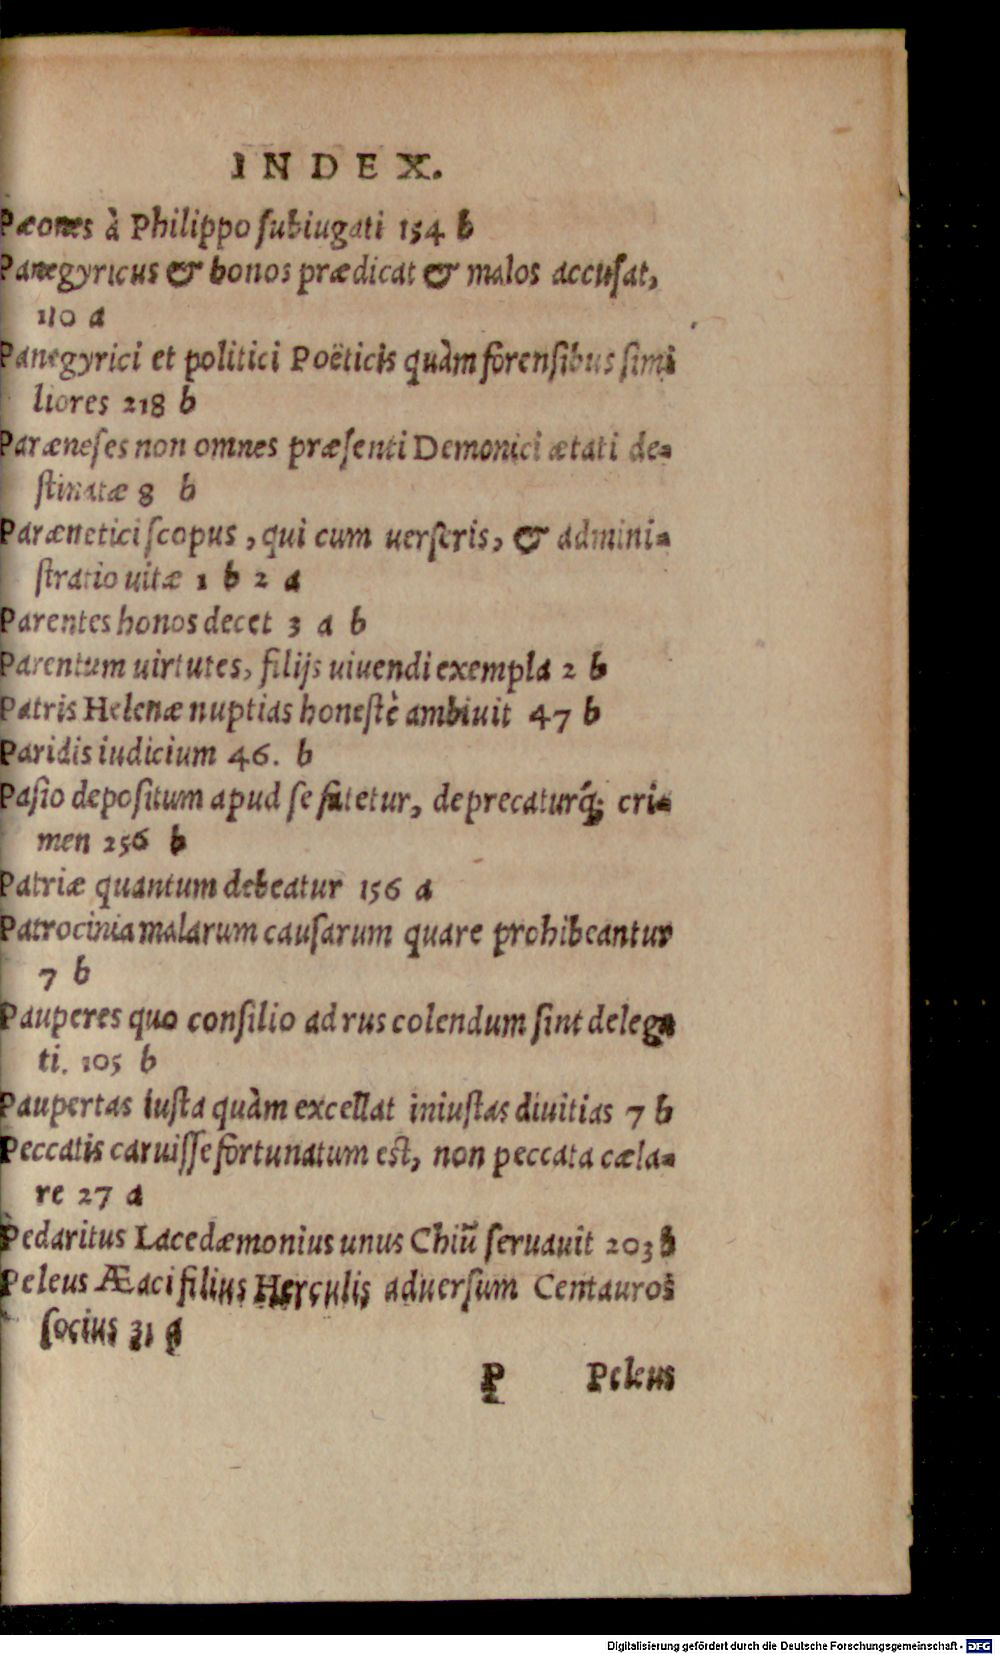 INDEX.
Pæones à Philippo ſubiugati 154 b
Panegyricus & bonos prædicat & malos accuſat,
110 a
Panegyrici et politici Poëticis quàm forenſibus ſimi
liores 218 b
Paræneſes non omnes præſenti Demonici ætati de-
ſtinatæ 8 b
Parænetici ſcopus, qui cum uerſeris, & admini-
ſtratio uitæ 1 b 2 a
Parentes honos decet 3 a b
Parentum uirtutes, filijs uiuendi exempla 2 b
Patris Helenæ nuptias honeſtè ambiuit 47 b
Paridis iudicium 46. b
Paſio depoſitum apud ſe fatetur, deprecaturq́; cri-
men 256 b
Patriæ quantum debeatur 156 a
Patrocinia malarum cauſarum quare prohibeantur
7 b
Pauperes quo conſilio ad rus colendum ſint delega
ti. 105 b
Paupertas iuſta quàm excellat iniuſtas diuitias 7 b
Peccatis caruiſſe fortunatum eſt, non peccata cæla-
re 27 a
Pedaritus Lacedæmonius unus Chiũ ſeruauit 203 b
Peleus Æaci filius Herculis aduerſum Centauros
ſocius 31 a
P Peleus
Digitalisierung gefördert durch die Deutsche Forschungsgemeinschaft - DFG